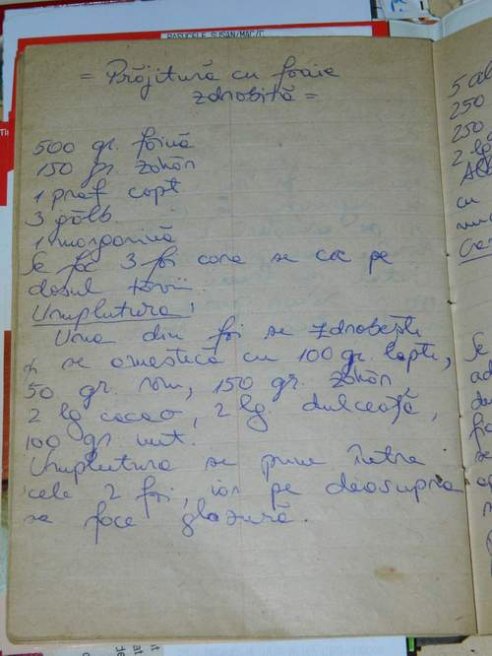 = Prăjitură cu foaie
zdrobită =
500 gr. făină
150 gr. zahăr
1 praf copt
3 gălb.
1 margarină
Se fac 3 foi care se coc pe
dosul tăvii
Umplutura:
Una din foi se zdrobește
și se amestecă cu 100 gr. lapte,
50 gr. rom, 150 gr. zahăr,
2 lg cacao, 2 lg dulceață,
100 gr unt.
Umplutura se pune între
cele 2 foi, iar pe deasupra
se face glazură.
5 al
250
250
2 lg
cu
Se